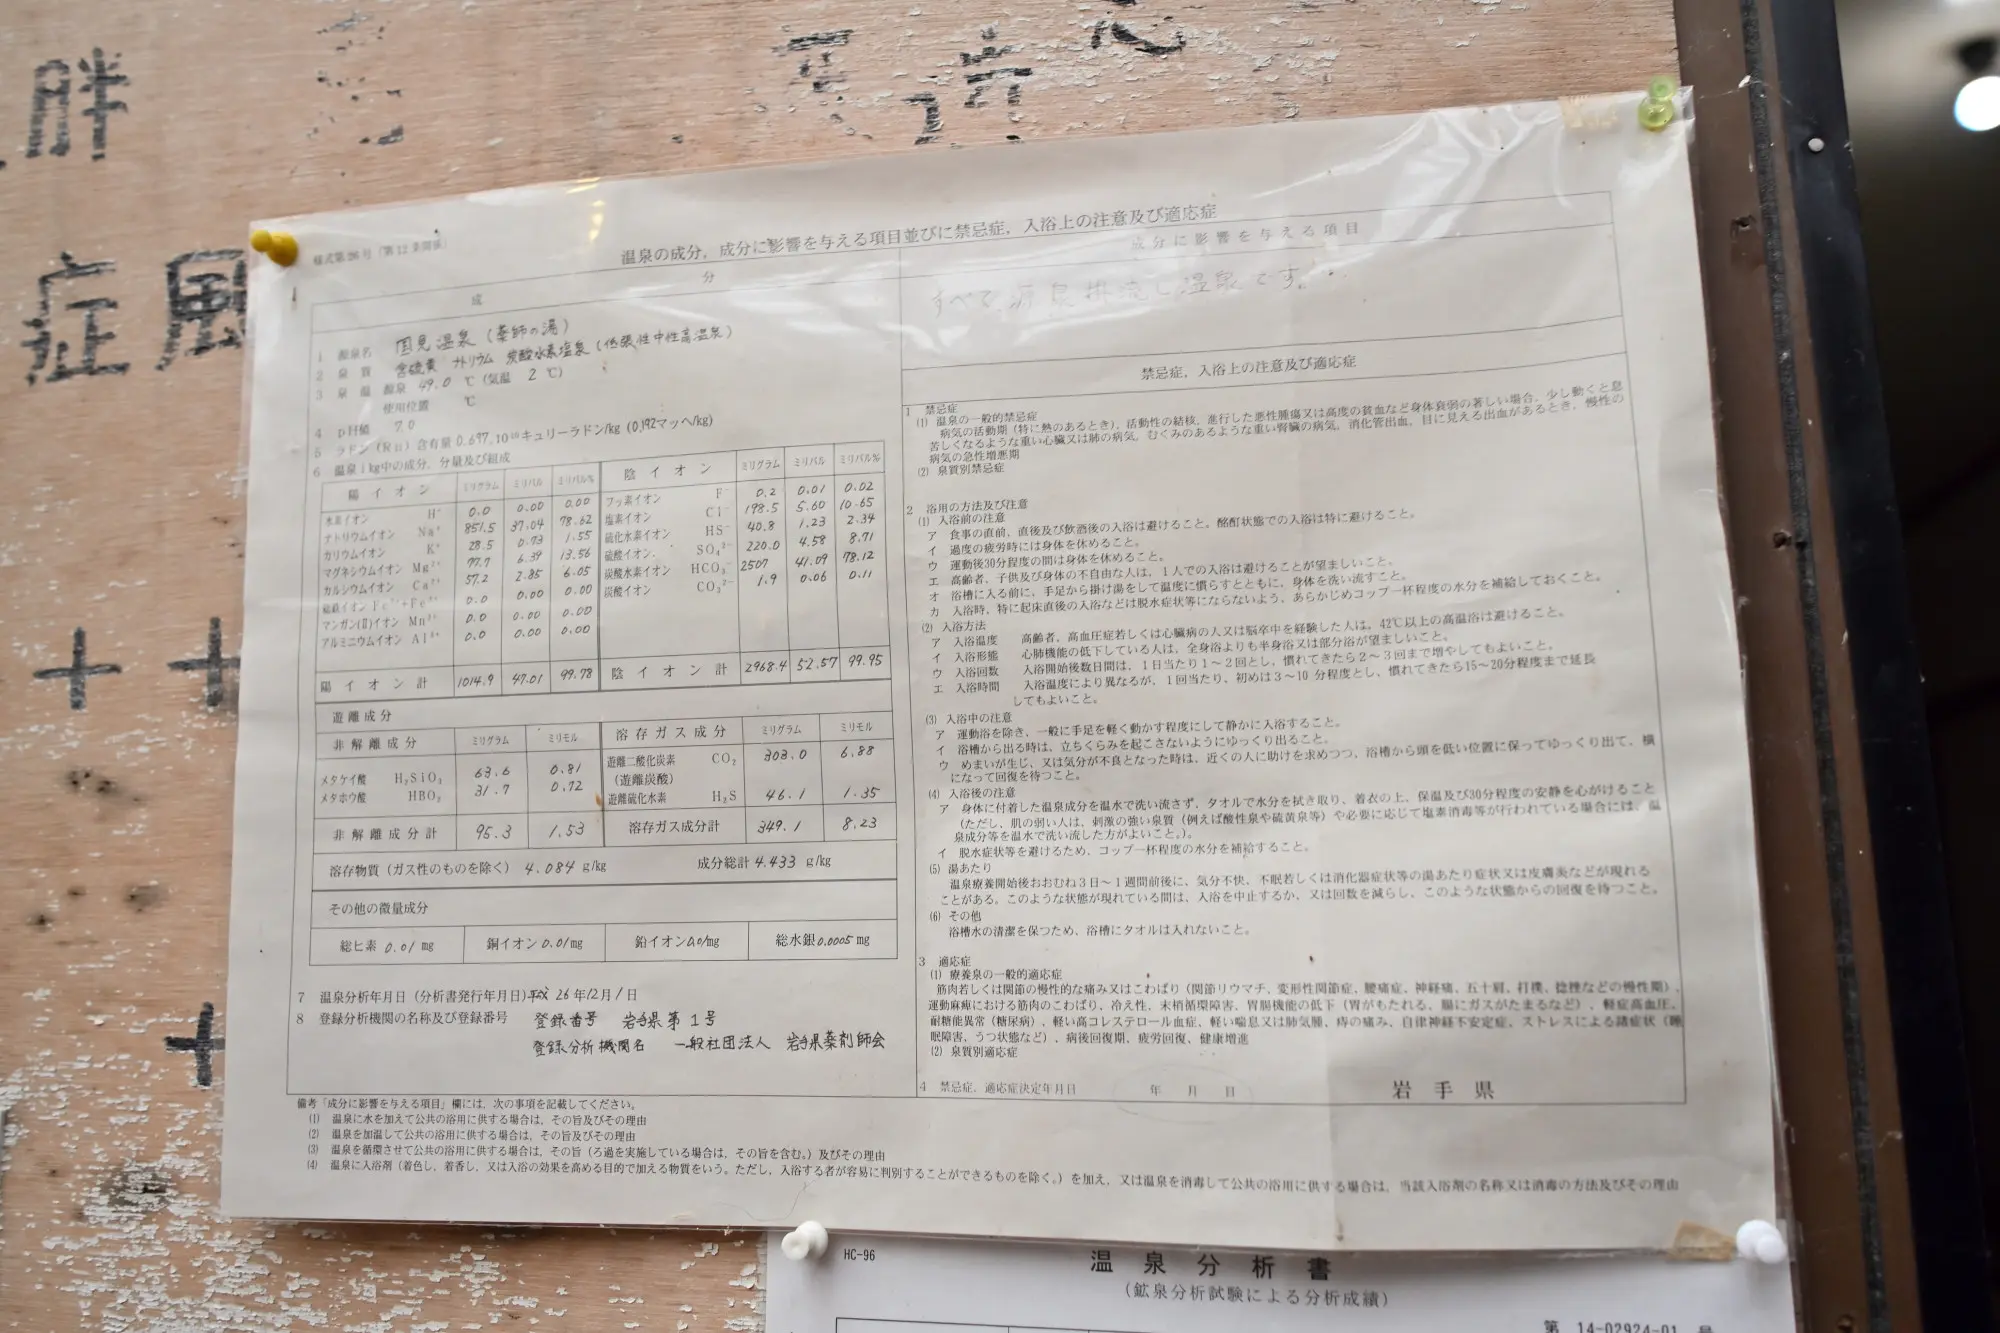 胖
症 風
様式第26号「第12条関係」
温泉の成分，成分に影響を与える項目並びに禁忌症，入浴上の注意及び適応症
成 分
1 源泉名 国見温泉（薬師の湯）
2 泉質 含硫黄 ナトリウム 炭酸水素塩泉（低張性中性高温泉）
3 泉温 源泉 49.0 ℃（気温 2 ℃）
使用位置 ℃
4 pH値 7.0
5 ラドン（Rn）含有量 0.697,10⁻¹⁰キュリーラドン/kg（0.192マッヘ/kg）
6 温泉1kg中の成分，分量及び組成
陽イオン ミリグラム ミリバル ミリバル%
水素イオン H⁺ 0.0 0.00 0.00
ナトリウムイオン Na⁺ 851.5 37.04 78.62
カリウムイオン K⁺ 28.5 0.73 1.55
マグネシウムイオン Mg²⁺ 77.7 6.39 13.56
カルシウムイオン Ca²⁺ 57.2 2.85 6.05
総鉄イオン Fe²⁺+Fe³⁺ 0.0 0.00 0.00
マンガン(Ⅱ)イオン Mn²⁺ 0.0 0.00 0.00
アルミニウムイオン Al³⁺ 0.0 0.00 0.00
陽イオン計 1014.9 47.01 99.78
陰イオン ミリグラム ミリバル ミリバル%
フッ素イオン F⁻ 0.2 0.01 0.02
塩素イオン Cl⁻ 198.5 5.60 10.65
硫化水素イオン HS⁻ 40.8 1.23 2.34
硫酸イオン SO₄²⁻ 220.0 4.58 8.71
炭酸水素イオン HCO₃⁻ 2507 41.09 78.12
炭酸イオン CO₃²⁻ 1.9 0.06 0.11
陰イオン計 2968.4 52.57 99.95
遊離成分
非解離成分 ミリグラム ミリモル
メタケイ酸 H₂SiO₃ 63.6 0.81
メタホウ酸 HBO₂ 31.7 0.72
非解離成分計 95.3 1.53
溶存ガス成分 ミリグラム ミリモル
遊離二酸化炭素 CO₂ 303.0 6.88
（遊離炭酸）
遊離硫化水素 H₂S 46.1 1.35
溶存ガス成分計 349.1 8.23
溶存物質（ガス性のものを除く） 4.084 g/kg 成分総計 4.433 g/kg
その他の微量成分
総ヒ素 0.01 mg 銅イオン 0.01mg 鉛イオン 0.01mg 総水銀 0.0005 mg
7 温泉分析年月日（分析書発行年月日）平成 26年12月1日
8 登録分析機関の名称及び登録番号 登録番号 岩手県第1号
登録分析機関名 一般社団法人 岩手県薬剤師会
成分に影響を与える項目
すべて、源泉掛流し温泉です。
禁忌症，入浴上の注意及び適応症
1 禁忌症
(1) 温泉の一般的禁忌症
病気の活動期（特に熱のあるとき），活動性の結核，進行した悪性腫瘍又は高度の貧血など身体衰弱の著しい場合，少し動くと息
苦しくなるような重い心臓又は肺の病気，むくみのあるような重い腎臓の病気，消化管出血，目に見える出血があるとき，慢性の
病気の急性増悪期
(2) 泉質別禁忌症
2 浴用の方法及び注意
(1) 入浴前の注意
ア 食事の直前，直後及び飲酒後の入浴は避けること。酩酊状態での入浴は特に避けること。
イ 過度の疲労時には身体を休めること。
ウ 運動後30分程度の間は身体を休めること。
エ 高齢者，子供及び身体の不自由な人は，1人での入浴は避けることが望ましいこと。
オ 浴槽に入る前に，手足から掛け湯をして温度に慣らすとともに，身体を洗い流すこと。
カ 入浴時，特に起床直後の入浴などは脱水症状等にならないよう，あらかじめコップ一杯程度の水分を補給しておくこと。
(2) 入浴方法
ア 入浴温度 高齢者，高血圧症若しくは心臓病の人又は脳卒中を経験した人は，42℃以上の高温浴は避けること。
イ 入浴形態 心肺機能の低下している人は，全身浴よりも半身浴又は部分浴が望ましいこと。
ウ 入浴回数 入浴開始後数日間は，1日当たり1～2回とし，慣れてきたら2～3回まで増やしてもよいこと。
エ 入浴時間 入浴温度により異なるが，1回当たり，初めは3～10分程度とし，慣れてきたら15～20分程度まで延長
してもよいこと。
(3) 入浴中の注意
ア 運動浴を除き，一般に手足を軽く動かす程度にして静かに入浴すること。
イ 浴槽から出る時は，立ちくらみを起こさないようにゆっくり出ること。
ウ めまいが生じ，又は気分が不良となった時は，近くの人に助けを求めつつ，浴槽から頭を低い位置に保ってゆっくり出て，横
になって回復を待つこと。
(4) 入浴後の注意
ア 身体に付着した温泉成分を温水で洗い流さず，タオルで水分を拭き取り，着衣の上，保温及び30分程度の安静を心がけること
（ただし，肌の弱い人は，刺激の強い泉質（例えば酸性泉や硫黄泉等）や必要に応じて塩素消毒等が行われている場合には，温
泉成分等を温水で洗い流した方がよいこと。）。
イ 脱水症状等を避けるため，コップ一杯程度の水分を補給すること。
(5) 湯あたり
温泉療養開始後おおむね3日～1週間前後に，気分不快，不眠若しくは消化器症状等の湯あたり症状又は皮膚炎などが現れる
ことがある。このような状態が現れている間は，入浴を中止するか，又は回数を減らし，このような状態からの回復を待つこと。
(6) その他
浴槽水の清潔を保つため，浴槽にタオルは入れないこと。
3 適応症
(1) 療養泉の一般的適応症
筋肉若しくは関節の慢性的な痛み又はこわばり（関節リウマチ，変形性関節症，腰痛症，神経痛，五十肩，打撲，捻挫などの慢性期），
運動麻痺における筋肉のこわばり，冷え性，末梢循環障害，胃腸機能の低下（胃がもたれる，腸にガスがたまるなど），軽症高血圧，
耐糖能異常（糖尿病），軽い高コレステロール血症，軽い喘息又は肺気腫，痔の痛み，自律神経不安定症，ストレスによる諸症状（睡
眠障害，うつ状態など），病後回復期，疲労回復，健康増進
(2) 泉質別適応症
4 禁忌症，適応症決定年月日 年 月 日 岩手県
備考「成分に影響を与える項目」欄には，次の事項を記載してください。
(1) 温泉に水を加えて公共の浴用に供する場合は，その旨及びその理由
(2) 温泉を加温して公共の浴用に供する場合は，その旨及びその理由
(3) 温泉を循環させて公共の浴用に供する場合は，その旨（ろ過を実施している場合は，その旨を含む。）及びその理由
(4) 温泉に入浴剤（着色し，着香し，又は入浴の効果を高める目的で加える物質をいう。ただし，入浴する者が容易に判別することができるものを除く。）を加え，又は温泉を消毒して公共の浴用に供する場合は，当該入浴剤の名称又は消毒の方法及びその理由
HC-96
温泉分析書
（鉱泉分析試験による分析成績）
第 14-02924-01 号